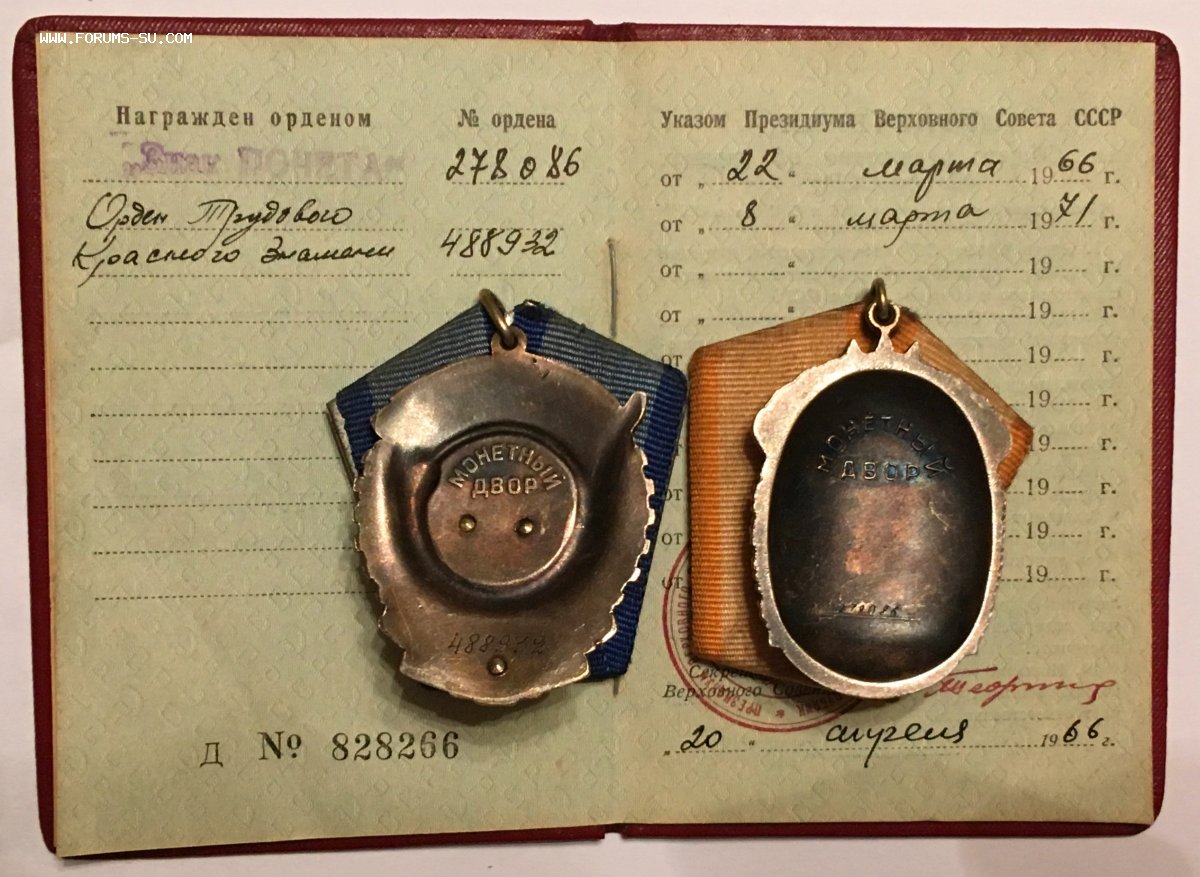 WWW.FORUMS-SU.COM
Награжден орденом
№ ордена
„Знак ПОЧЕТА“
278086
Орден Трудового
Красного Знамени
488932
Указом Президиума Верховного Совета СССР
от „ 22 “ марта 1966 г.
от „ 8 “ марта 1971 г.
от „ “ 19 г.
от „ 19 г.
от 19 г.
19 г.
19 г.
от 19 г.
от 19 г.
от 19 г.
МОНЕТНЫЙ
ДВОР
488932
МОНЕТНЫЙ
ДВОР
Верховного
„ 20 “ апреля 1966 г.
Д № 828266